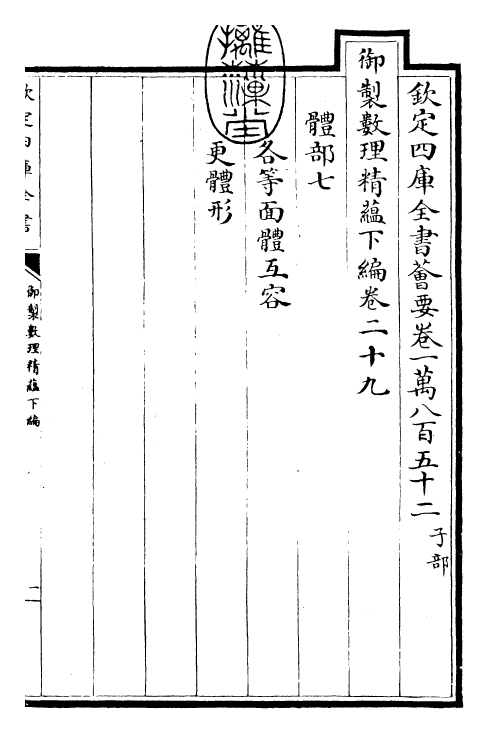 欽定四庫全書薈要卷一萬八百五十二 子部
御製數理精蘊下編卷二十九
體部七
各等面體互容
更體形
欽定四庫全書
御製數理精蘊下編
一